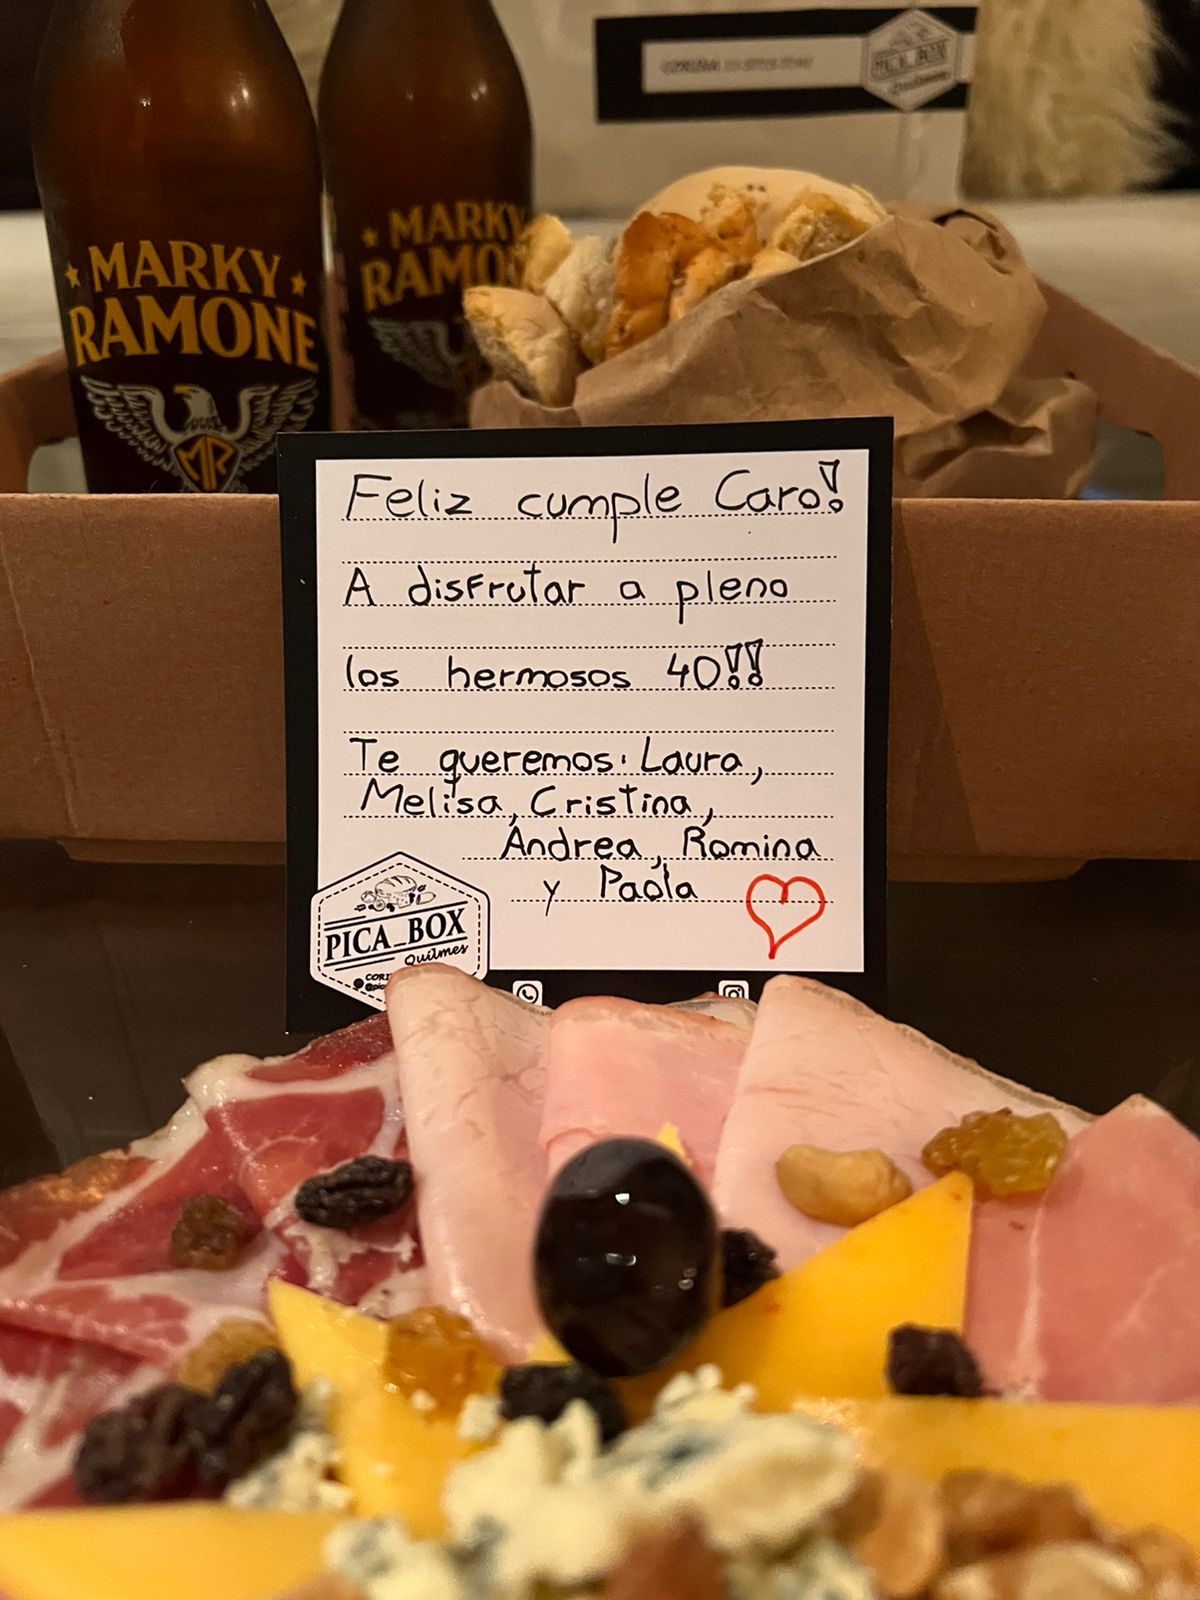 ★ MARKY ★
RAMONE
MR
★ MARKY
RAMO
PICA_BOX
Quilmes
Feliz cumple Caro!
A disfrutar a pleno
los hermosos 40!!
Te queremos: Laura,
Melisa, Cristina,
Andrea, Romina
y Paola
PICA_BOX
Quilmes